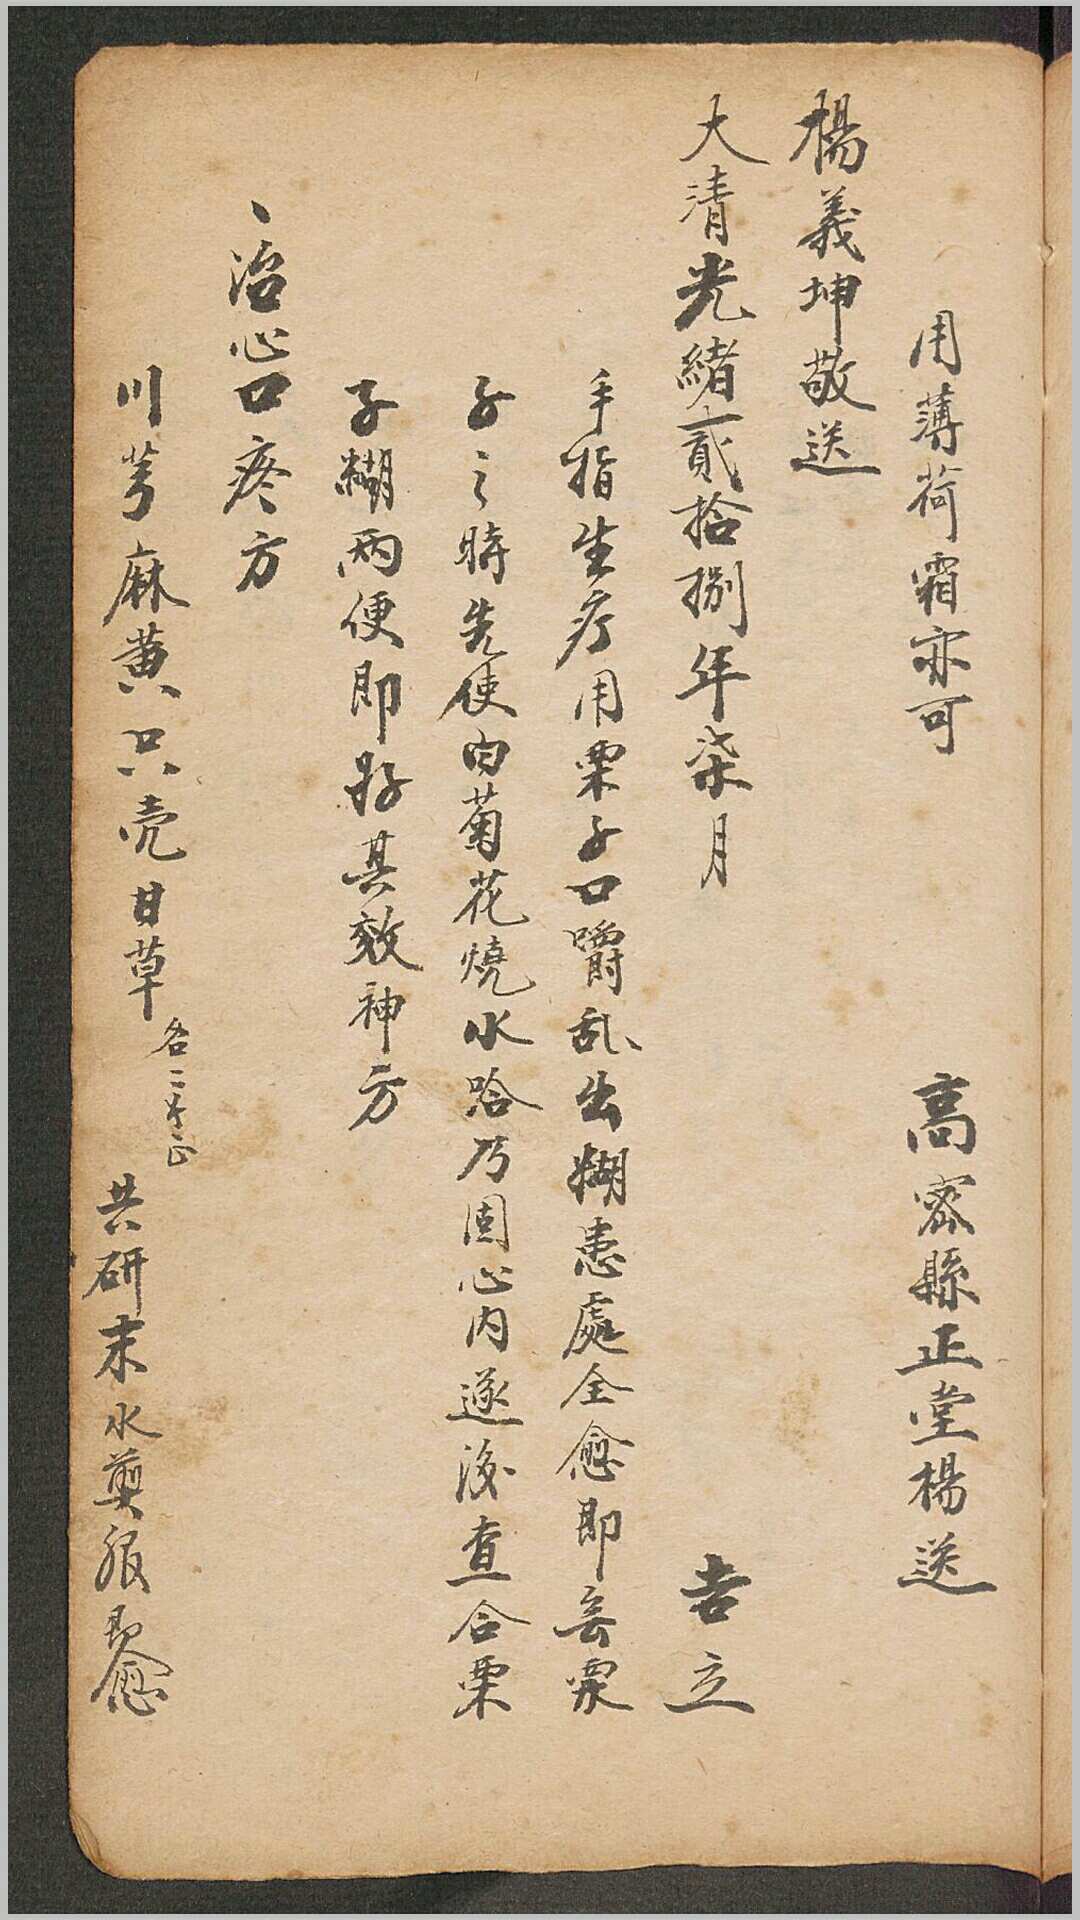 用薄荷霜亦可　高密縣正堂楊送
楊義坤敬送
大清光緒貳拾捌年柒月　吉立
手指生疔用栗子口嚼乱出糊患處全愈即無栗
子之時先使白菊花燒水哈乃固心內遂後查合栗
子糊兩便即好其效神方
、治心口疼方
川芎麻黄只壳甘草各二錢正共研末水煎服即愈